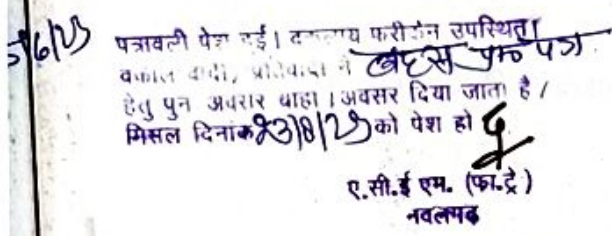 5/6/23
पत्रावली पेश हुई। वकलाय फरीकेन उपस्थित।
वकील वादी, प्रतिवादी ने बहस प्रा० पत्र
हेतु पुन अवसर चाहा। अवसर दिया जाता है।
मिसल दिनांक 23/8/23 को पेश हो
ए.सी.ई एम. (फा.ट्रे)
नवलगढ